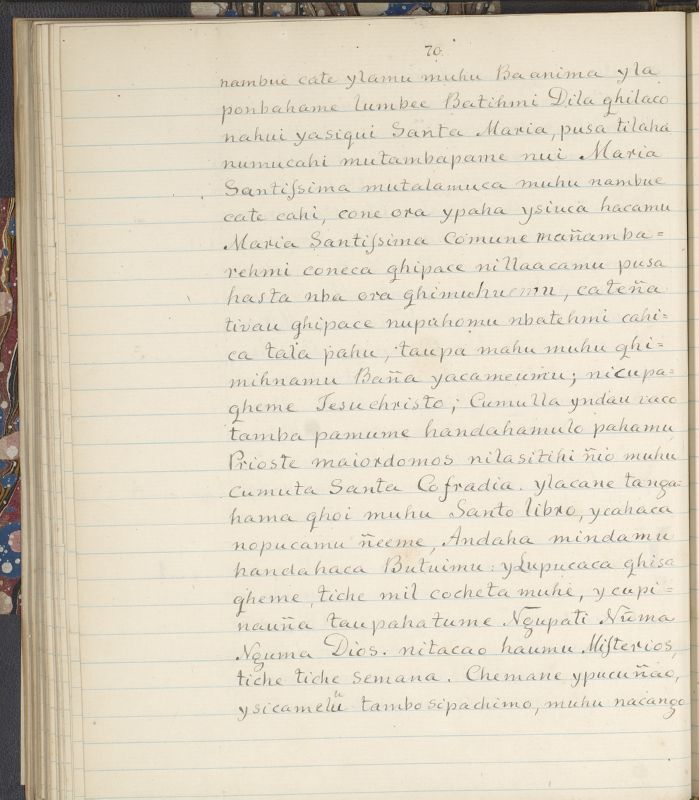 70.
nambue cate ylamu muhu Baanima yla
ponbahame lumbee Batihmi Dila ghilaco
nahui yasiqui Santa Maria, pusa tilaha
numucahi mutambapame nui Maria
Santiſsima mutalamuca muhu nambue
cate cahi, cone ora ypaha ysiuca hacamu
Maria Santiſsima comune mañamba=
rehmi coneca ghipace nillaacamu pusa
hasta nba ora ghimuhuemu, cateña
tivau ghipace nupahomu nbatehmi cahi=
ca tala pahu, taupa mahu muhu ghi=
mihnamu Baña yacameumu; nicupa=
gheme Jesuchristo; Cumulla yndau caco
tamba pamume handahamulo pahamu
Prioste maiordomos nilasitihi ñio muhu
cumuta Santa Cofradia. ylacane tanga=
hama ghoi muhu Santo libro, ycahaca
nopucamu ñeeme, Andaha mindamu
handahaca Butuimu: y Lupucaca ghisa
gheme, tiche mil cocheta muhe, y cupi=
nauña taupahatume Ngupati Numa
Nguma Dios. nitacao haumu Miſterios,
tiche tiche semana. Chemane ypucuñao,
ysicamelü tambo sipachimo, muhu nacango